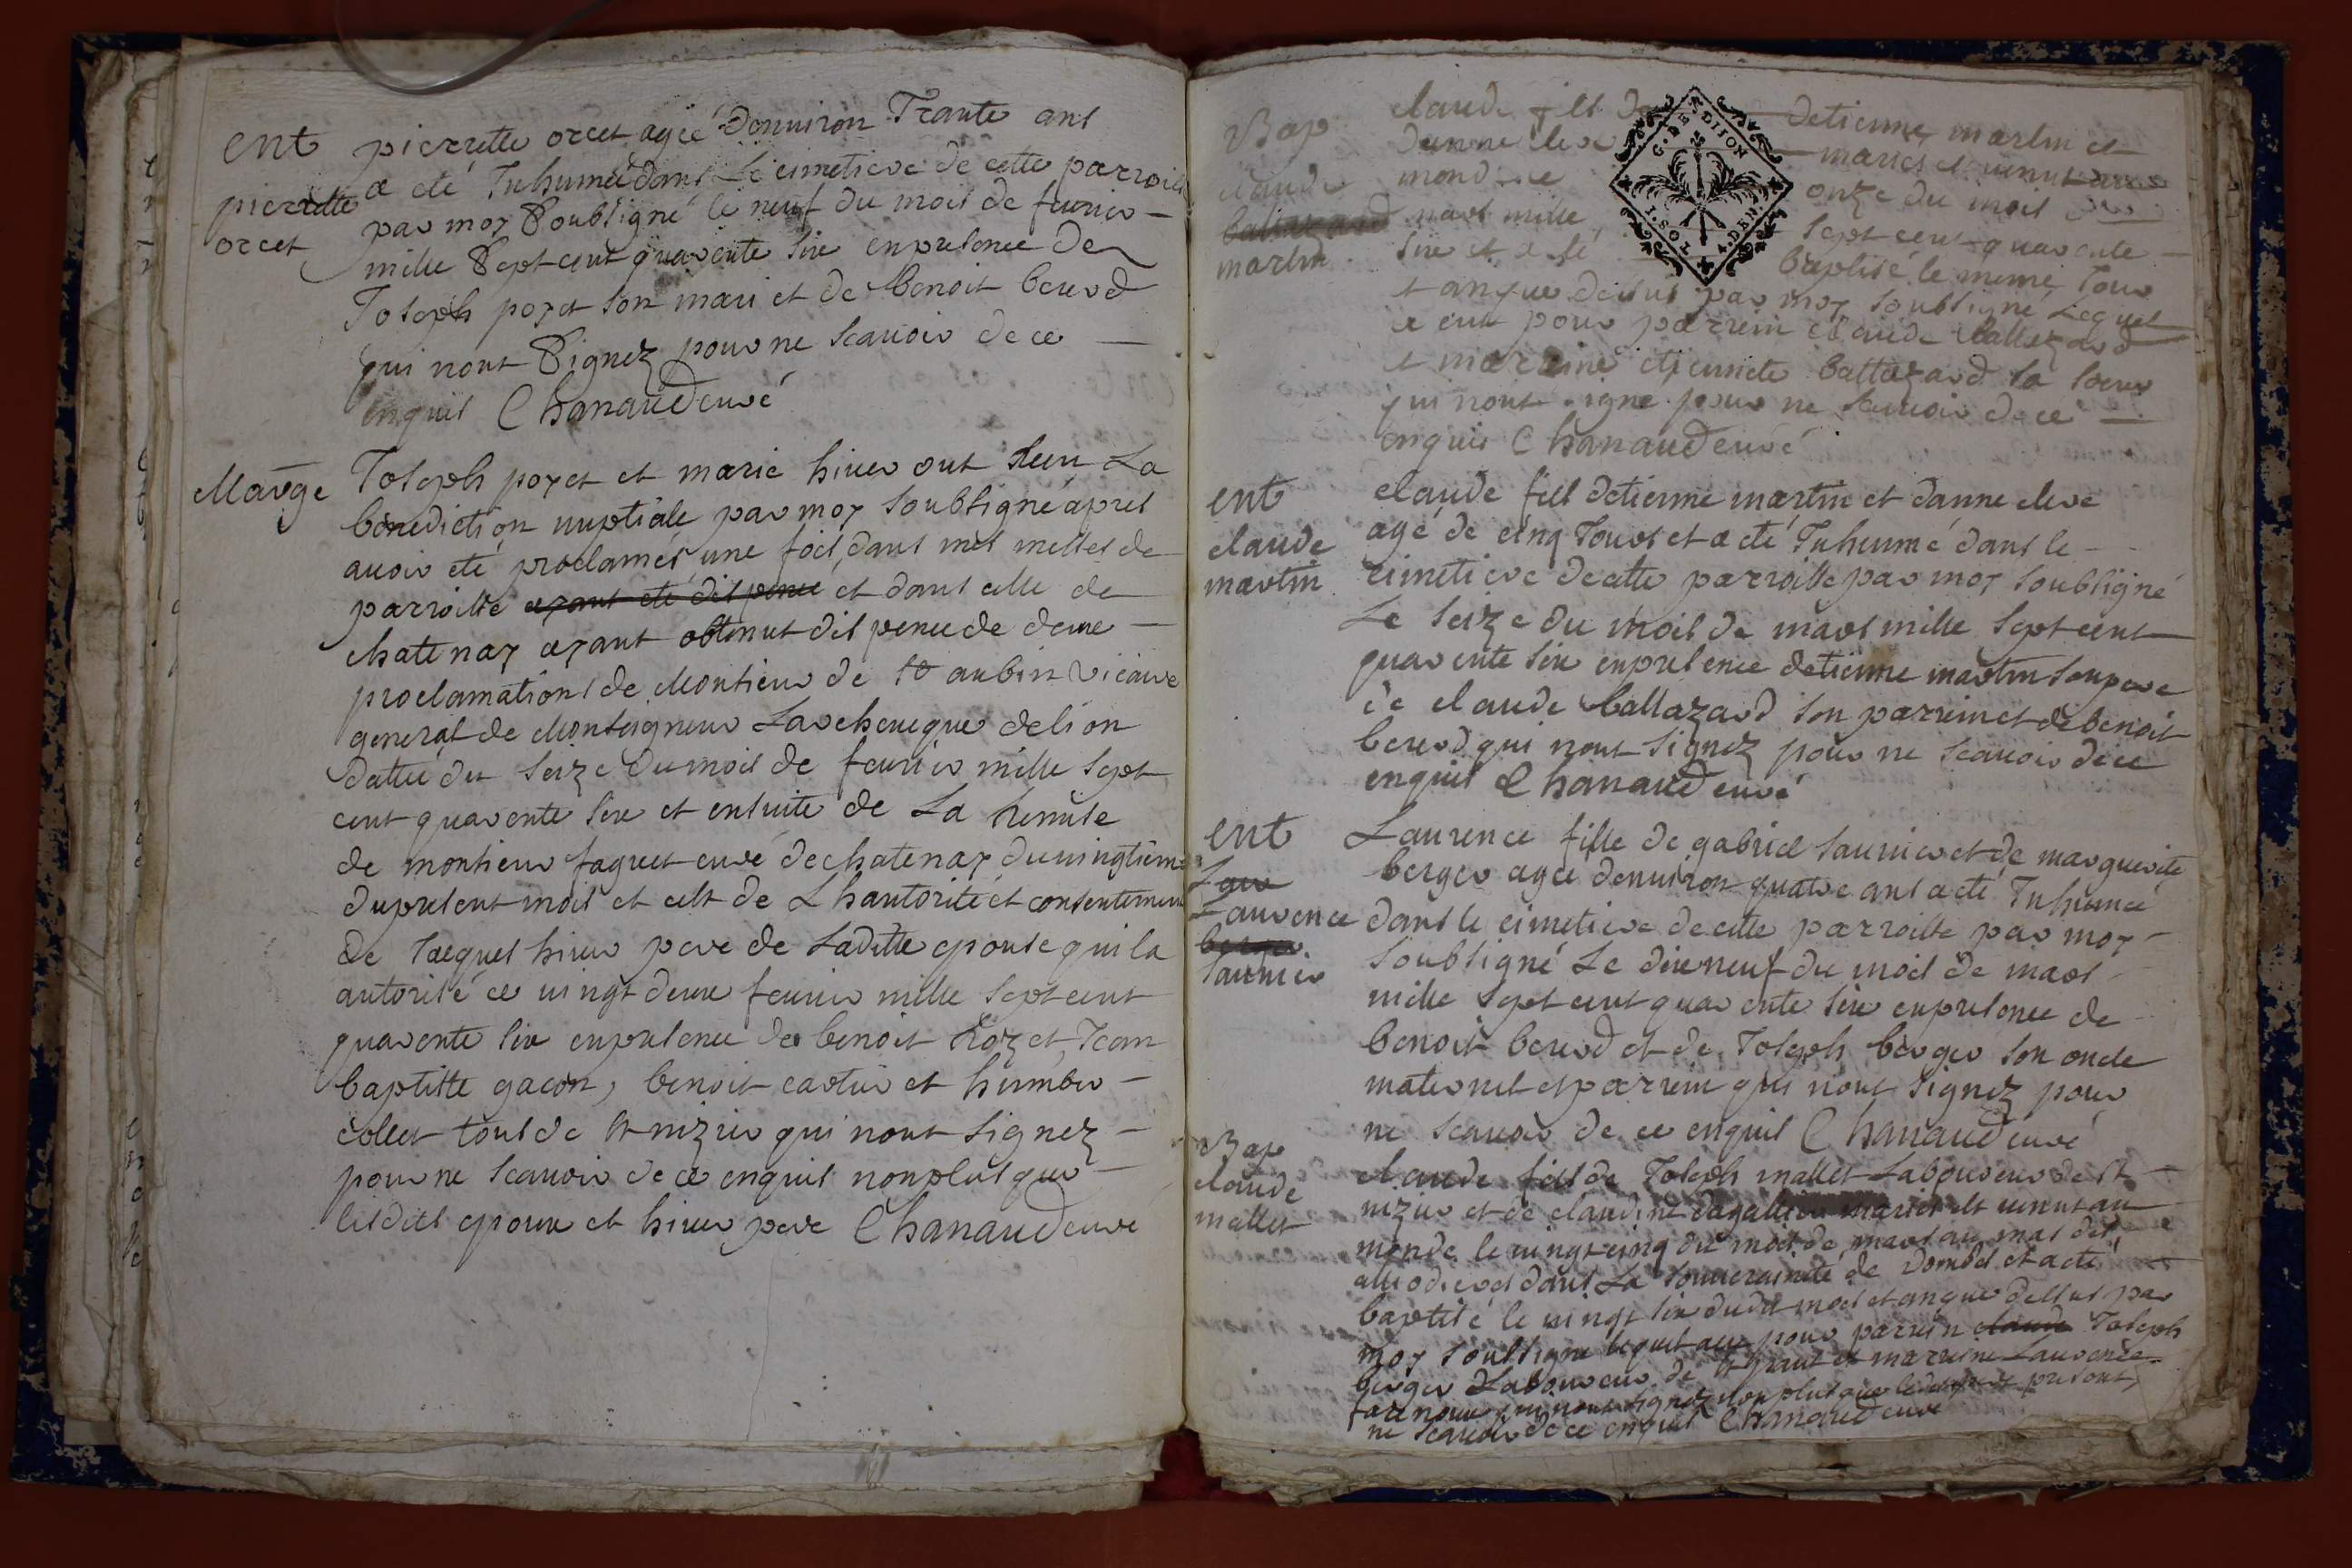 ent
pierrette
orcet
pierrette orcet agée denuiron Trante ans
a eté Inhumée dans Le cimetiere de cette parroisse
par moy Soubsigné le neuf du mois de feurier
mille Sept cent quarente six en presence de
Joseph poyet son mari et de benoit bererd
qui n'ont Signez pour ne scauoir de ce
enquis Chanaud curé
Mar̄ge
Joseph poyet et marie hiuer ont receu La
benediction nuptiale par moy soubsigné apres
auoir eté proclamés une fois dans mes messes de
parroisse ayant eté dispence et dans celle de
chatenay ayant obtenut dispence de deux
proclamations de Monsieur de st aubin vicaire
general de Monseigneur Larcheueque de lion
dattée du seize du mois de feurier mille sept
cent quarente six et ensuite de La remise
de monsieur faguet curé de chatenay du uingtieme
du present mois et cest de Lhautorité et consentement
de Jacques hiuer pere de Laditte epouse qui la
autorisé ce uingt deux feurier mille sept cent
quarente six en presence de benoit roz et Jean
baptiste gacon, benoit cartier et humber
collet tous de st nizier qui nont signez
pour ne scauoir de ce enquis non plus que
lesdits epoux et hiuer pere Chanaud curé
Bap
claude
baltazard
martin
claude fils de detienne martin et
danne clere mariés et uenut au
mond le onze du mois
mars mille sept cent quarente
six et a eté baptisé le meme Jour
et an que dessus par moy soubsigné Lequel
a eut pour parrein claude ballazard
et marreine etiennete baltazard sa soeur
qui nont signe pour ne scauoir de ce
enquis Chanaud curé
ent
claude
martin
claude fils detienne martin et danne clere
agé de cinq Jours et a eté Inhumé dans le
cimetiere de cette parroisse par moy soubsigné
Le seize du mois de mars mille sept cent
quarente six en presence detienne martin son pere
de claude ballazard son parrein et de benoit
bererd qui nont signez pour ne scauoir de ce
enquis Chanaud curé
ent
Laur
Laurence
berger
saunier
Laurence fille de gabriel saunier et de marguerite
berger agée denuiron quatre ans a eté Inhumée
dans le cimetiere de cette parroisse par moy
soubsigné Le dixneuf du mois de mars
mille sept cent quarente six en presence de
benoit bererd et de Joseph berger son oncle
maternel et parrein qui nont signez pour
ne scauoir de ce enquis Chanaud curé
Bap
claude
mallet
claude fils de Joseph mallet Laboureur de st
nizier et de claudine mariés est uenut au
monde le uingt cinq du mois de mars au mas des
dans La souuerainité de dombes et a eté
baptisé le uingt six dudit mois et an que dessus par
moy soubsigné lequel a eu pour parrein claude Joseph
berger Laboureur de et marreine Laurence
qui nont signez non plus que present
ne scauoir de ce enquis Chanaud curé
G. DE DIJON
1. SOL 4. DEN.